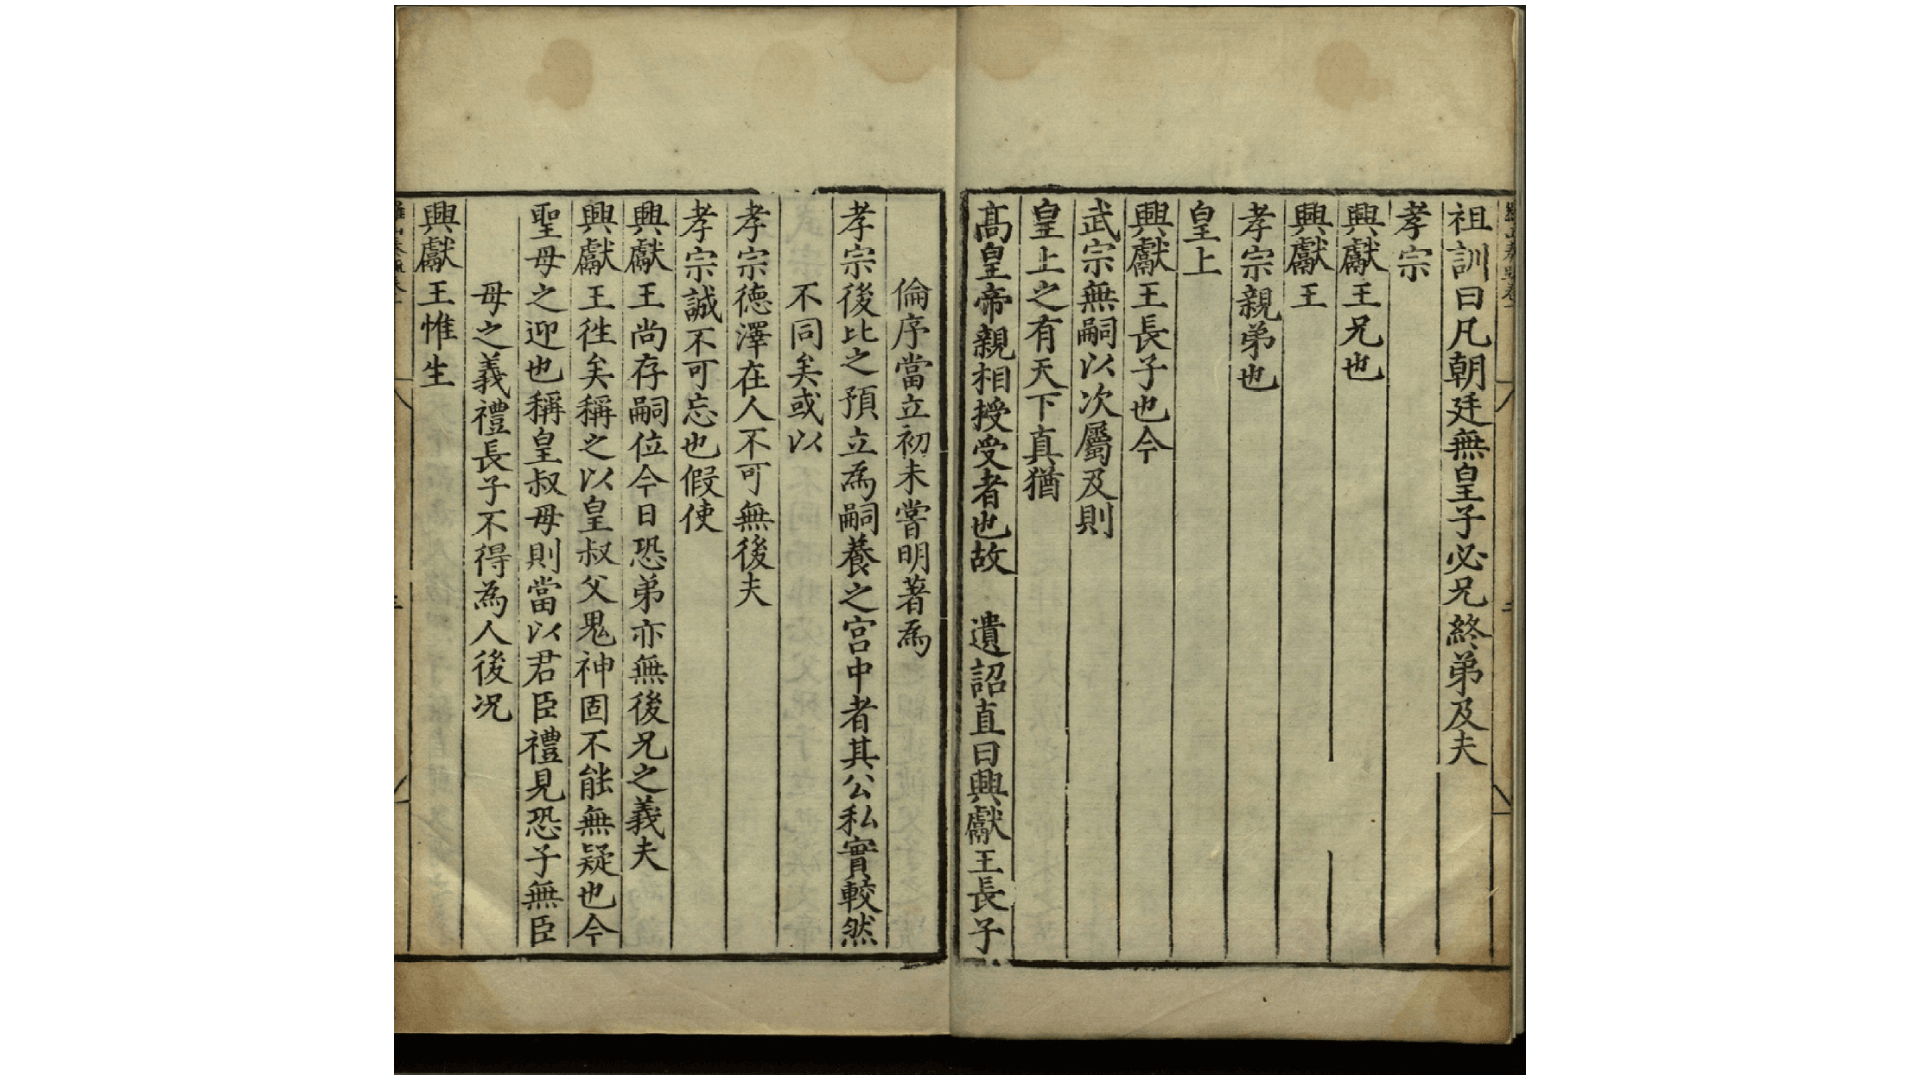 祖訓曰凡朝廷無皇子必兄終弟及夫
孝宗
興獻王兄也
興獻王
孝宗親弟也
皇上
興獻王長子也今
武宗無嗣以次屬及則
皇上之有天下真猶
髙皇帝親相授受者也故 遺詔直曰興獻王長子
倫序當立初未嘗明著為
孝宗後比之預立為嗣養之宮中者其公私實較然
不同矣或以
孝宗德澤在人不可無後夫
孝宗誠不可忘也假使
興獻王尚存嗣位今日恐弟亦無後兄之義夫
興獻王徃矣稱之以皇叔父鬼神固不能無疑也今
聖母之迎也稱皇叔母則當以君臣禮見恐子無臣
母之義禮長子不得為人後况
興獻王惟生